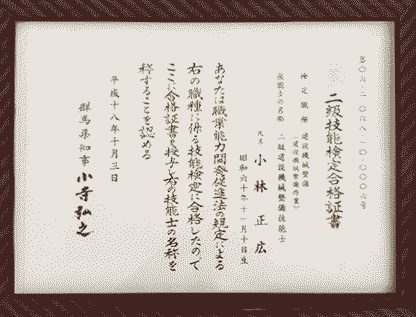 二級技能検定合格証書
検定職種 建設機械整備
(建設機械整備作業)
技能士の名称 二級建設機械整備技能士
氏名 小林正広
昭和六十年十一月十日生
あなたは職業能力開発促進法の規定による
右の職種に係る技能検定に合格したので
ここに合格証書を授与し右の技能士の名称を
称することを認める
平成十八年十月三日
群馬県知事 小寺弘之